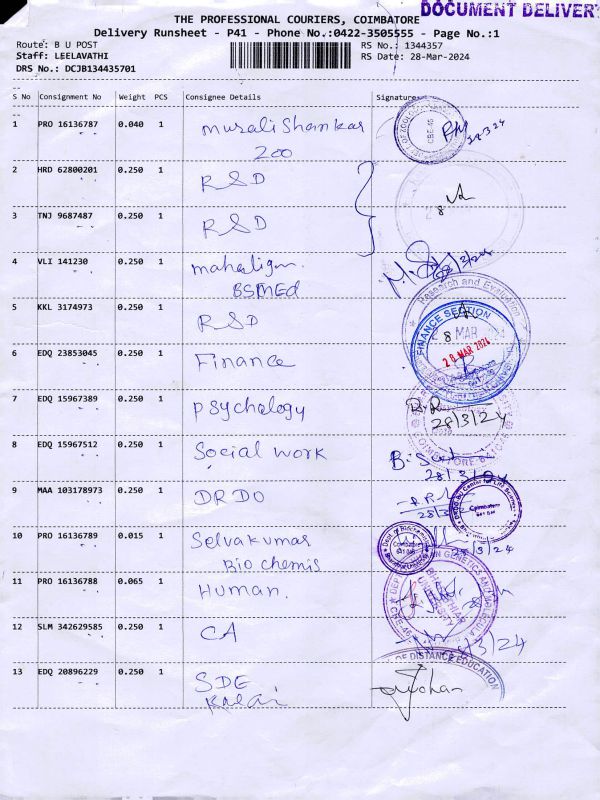 DOCUMENT DELIVERY
THE PROFESSIONAL COURIERS, COIMBATORE
Delivery Runsheet - P41 - Phone No.:0422-3505555 - Page No.:1
Route: B U POST
RS No.: 1344357
Staff: LEELAVATHI
RS Date: 28-Mar-2024
DRS No.: DCJB134435701
S No Consignment No Weight PCS Consignee Details Signature
1 PRO 16136787 0.040 1 Murali Shankar
200
2 HRD 62800201 0.250 1 RSD
3 TNJ 9687487 0.250 1 RSD
4 VLI 141230 0.250 1
BSMEd
28/3/24
Research and Evaluation
5 KKL 3174973 0.250 1 RSD
FINANCE SECTION
28 MAR 2024
6 EDQ 23853045 0.250 1 Finance
7 EDQ 15967389 0.250 1 Psychology
28/3/24
8 EDQ 15967512 0.250 1 Social work
28/3/24
9 MAA 103178973 0.250 1 DRDO
10 PRO 16136789 0.015 1 Selvakumar
Bio chemis
28/3/24
11 PRO 16136788 0.065 1 Human.
12 SLM 342629585 0.250 1 CA
OF DISTANCE EDUCATION
13 EDQ 20896229 0.250 1 SDE
Kalai